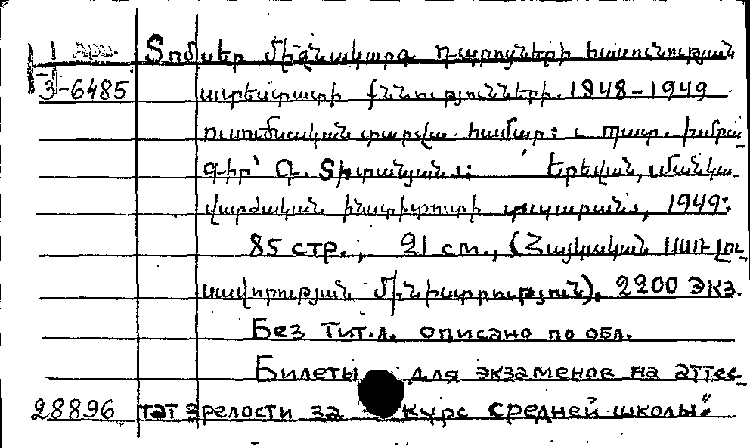 Տոմսեր միջնակարգ դպրոցների հասունության
3-6485 ատեստատի քննությունների. 1948-1949
ուսումնական տարվա համար: Պատ. խմբա-
գիր՝ Գ. Տիտանյան: Երեվան, մանկա-
վարժական ինստիտուտի տպարան, 1949:
85 стр., 21 см., (Հայկական ՍՍՌ լու-
սավորության մինիստրություն), 2200 экз.
Без тит.л. описано по обл.
Билеты для экзаменов на аттес-
28896 тат зрелости за курс средней школы: